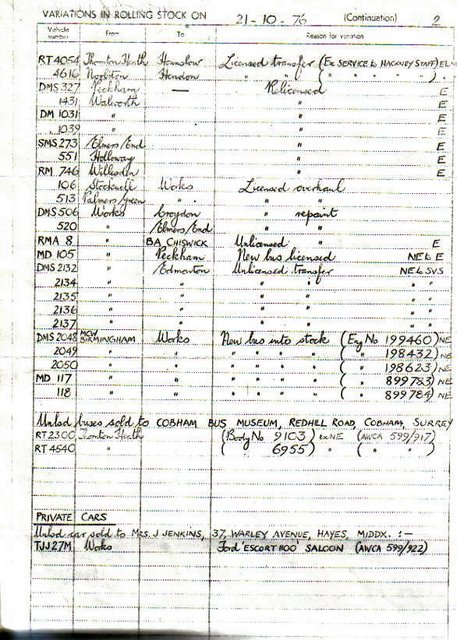 VARIATIONS IN ROLLING STOCK ON 21-10-76 (Continuation) 2
Vehicle number From To Reason for variation
RT 4054 Thornton Heath Hounslow Licensed transfer (Ex SERVICE to HACKNEY STAFF) EL NE
4616 Norbiton Hendon " " ( " " " " ) "
DMS 327 Peckham — Relicensed E
1431 Walworth " E
DM 1031 " " E
1039 " " E
SMS 273 Elmers/End " E
551 Holloway " E
RM 746 Willesden " E
106 Stockwell Works Licensed overhaul
513 Palmers/Green " " "
DMS 506 Works Croydon " repaint
520 " Elmers/End " "
RMA 8 " BA CHISWICK Unlicensed " E
MD 105 " Peckham New bus licensed NEL E
DMS 2132 " Edmonton Unlicensed transfer NEL SVS
2134 " " " " " "
2135 " " " " " "
2136 " " " " " "
2137 " " " " " "
DMS 2048 MCW BIRMINGHAM Works New bus into stock (Eng No 199460) NE
2049 " " " " " " ( " 198432) NE
2050 " " " " " " ( " 198623) NE
MD 117 " " " " " " ( " 899783) NE
118 " " " " " " ( " 899784) NE
Unlsd buses sold to COBHAM BUS MUSEUM, REDHILL ROAD, COBHAM, SURREY
RT 2300 Thornton Heath (Body No 9103) ex NE (AWCA 599/917)
RT 4540 " ( " 6955) " ( " " )
PRIVATE CARS
Unlsd car sold to MRS. J JENKINS, 37, WARLEY AVENUE, HAYES, MIDDX. :-
TJJ 27M Works Ford 'ESCORT 1100' SALOON (AWCA 599/922)